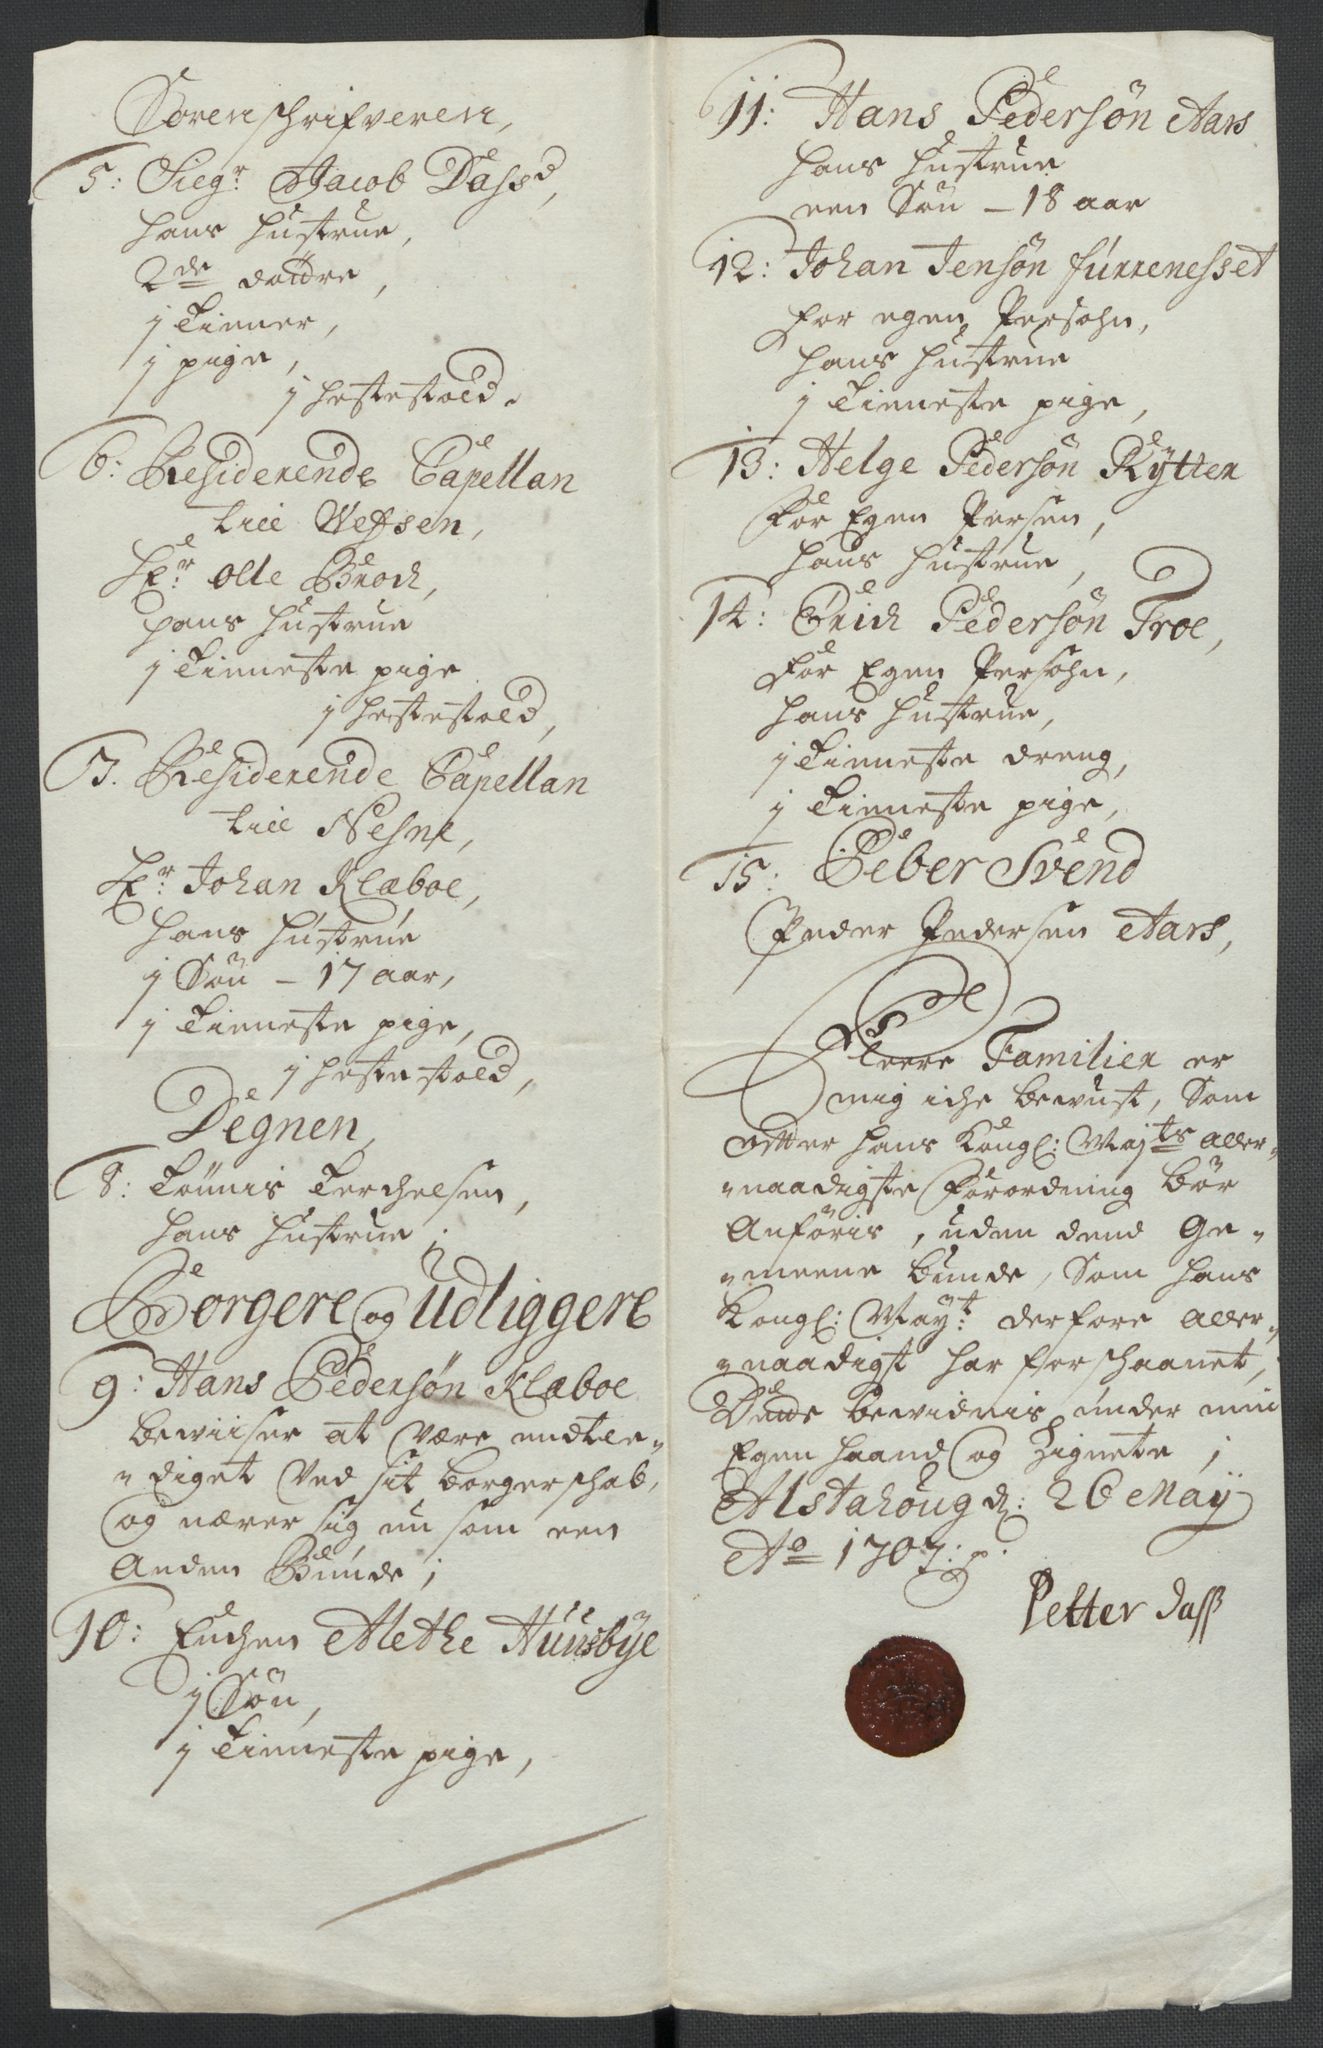 Sorenschrifveren,
5: Siegr. Jacob Dass,
hans hustrue,
2de døttre,
j tiener,
j pige,
j hestestoed.
6: Residerende Capellan
till Wefsen,
Hr. olle Broch,
hans hustrue
j tieneste pige
j hestestoed,
7. Residerende Capellan
till Nesne,
Hr. Johan Klæboe,
hans hustrue
j Søn – 17 aar,
j tieneste pige,
j hestestoed,
Degnen,
8: Tønnis Terchelsen,
hans hustrue;
Borgere og Udliggere
9: Hans Pedersøn Klæboe
beviiser at være endtle„
„diget ved sit borgerschab,
og nærer sig nu som een
Anden Bunde;
10: Enchen Alethe Hunsbye
j Søn,
j tieneste pige,
11: Hans Pedersøn Aars
hans hustrue
een Søn – 18 aar
12: Johan Jensøn furrenesset
for egen Persohn,
hans hustrue
j tieneste pige,
13: Helge Pedersøn Rytter
for Egen Persen,
hans hustrue,
14: Erich Pedersøn Troe,
for Egen Persohn,
hans hustrue,
j tieneste dreng,
j tieneste pige,
15: Peber Svend
Peder Pedersen Aars,
Fleere Familier er
mig iche bewust, Som
efter hans Kongl: Majts aller„
„naadigste Forordning bør
Anføris, uden dend Ge„
„meene bunde, Som hans
Kongl: Mayt: derfore aller„
„naadigst har forschaanet,
Dette bewidnis under min
Egen haand og Zignete;
Alstahoug d: 26 May
Ao 1707:
Petter Dass